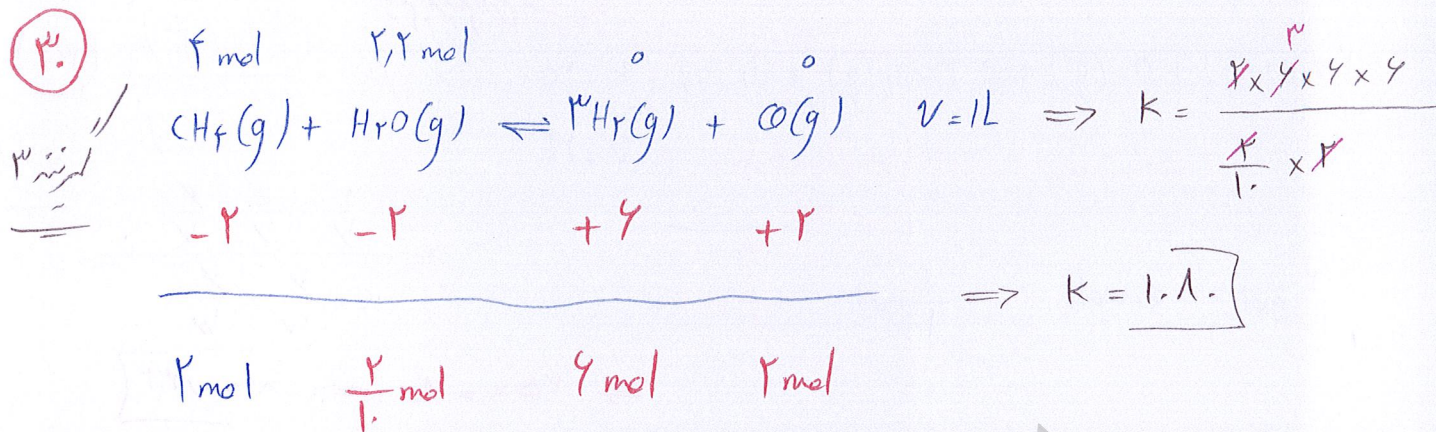 ۳۰
۴ mol ۲,۲ mol ۰ ۰
CH۴(g) + H۲O(g) ⇌ ۳H۲(g) + CO(g) V = 1L ⇒ K = (۲ × ۶ × ۶ × ۶) / (۲/۱۰ × ۲) ۳
گزینه ۳
-۲ -۲ +۶ +۲
⇒ K = ۱۰۸۰
۲ mol ۲/۱۰ mol ۶ mol ۲ mol